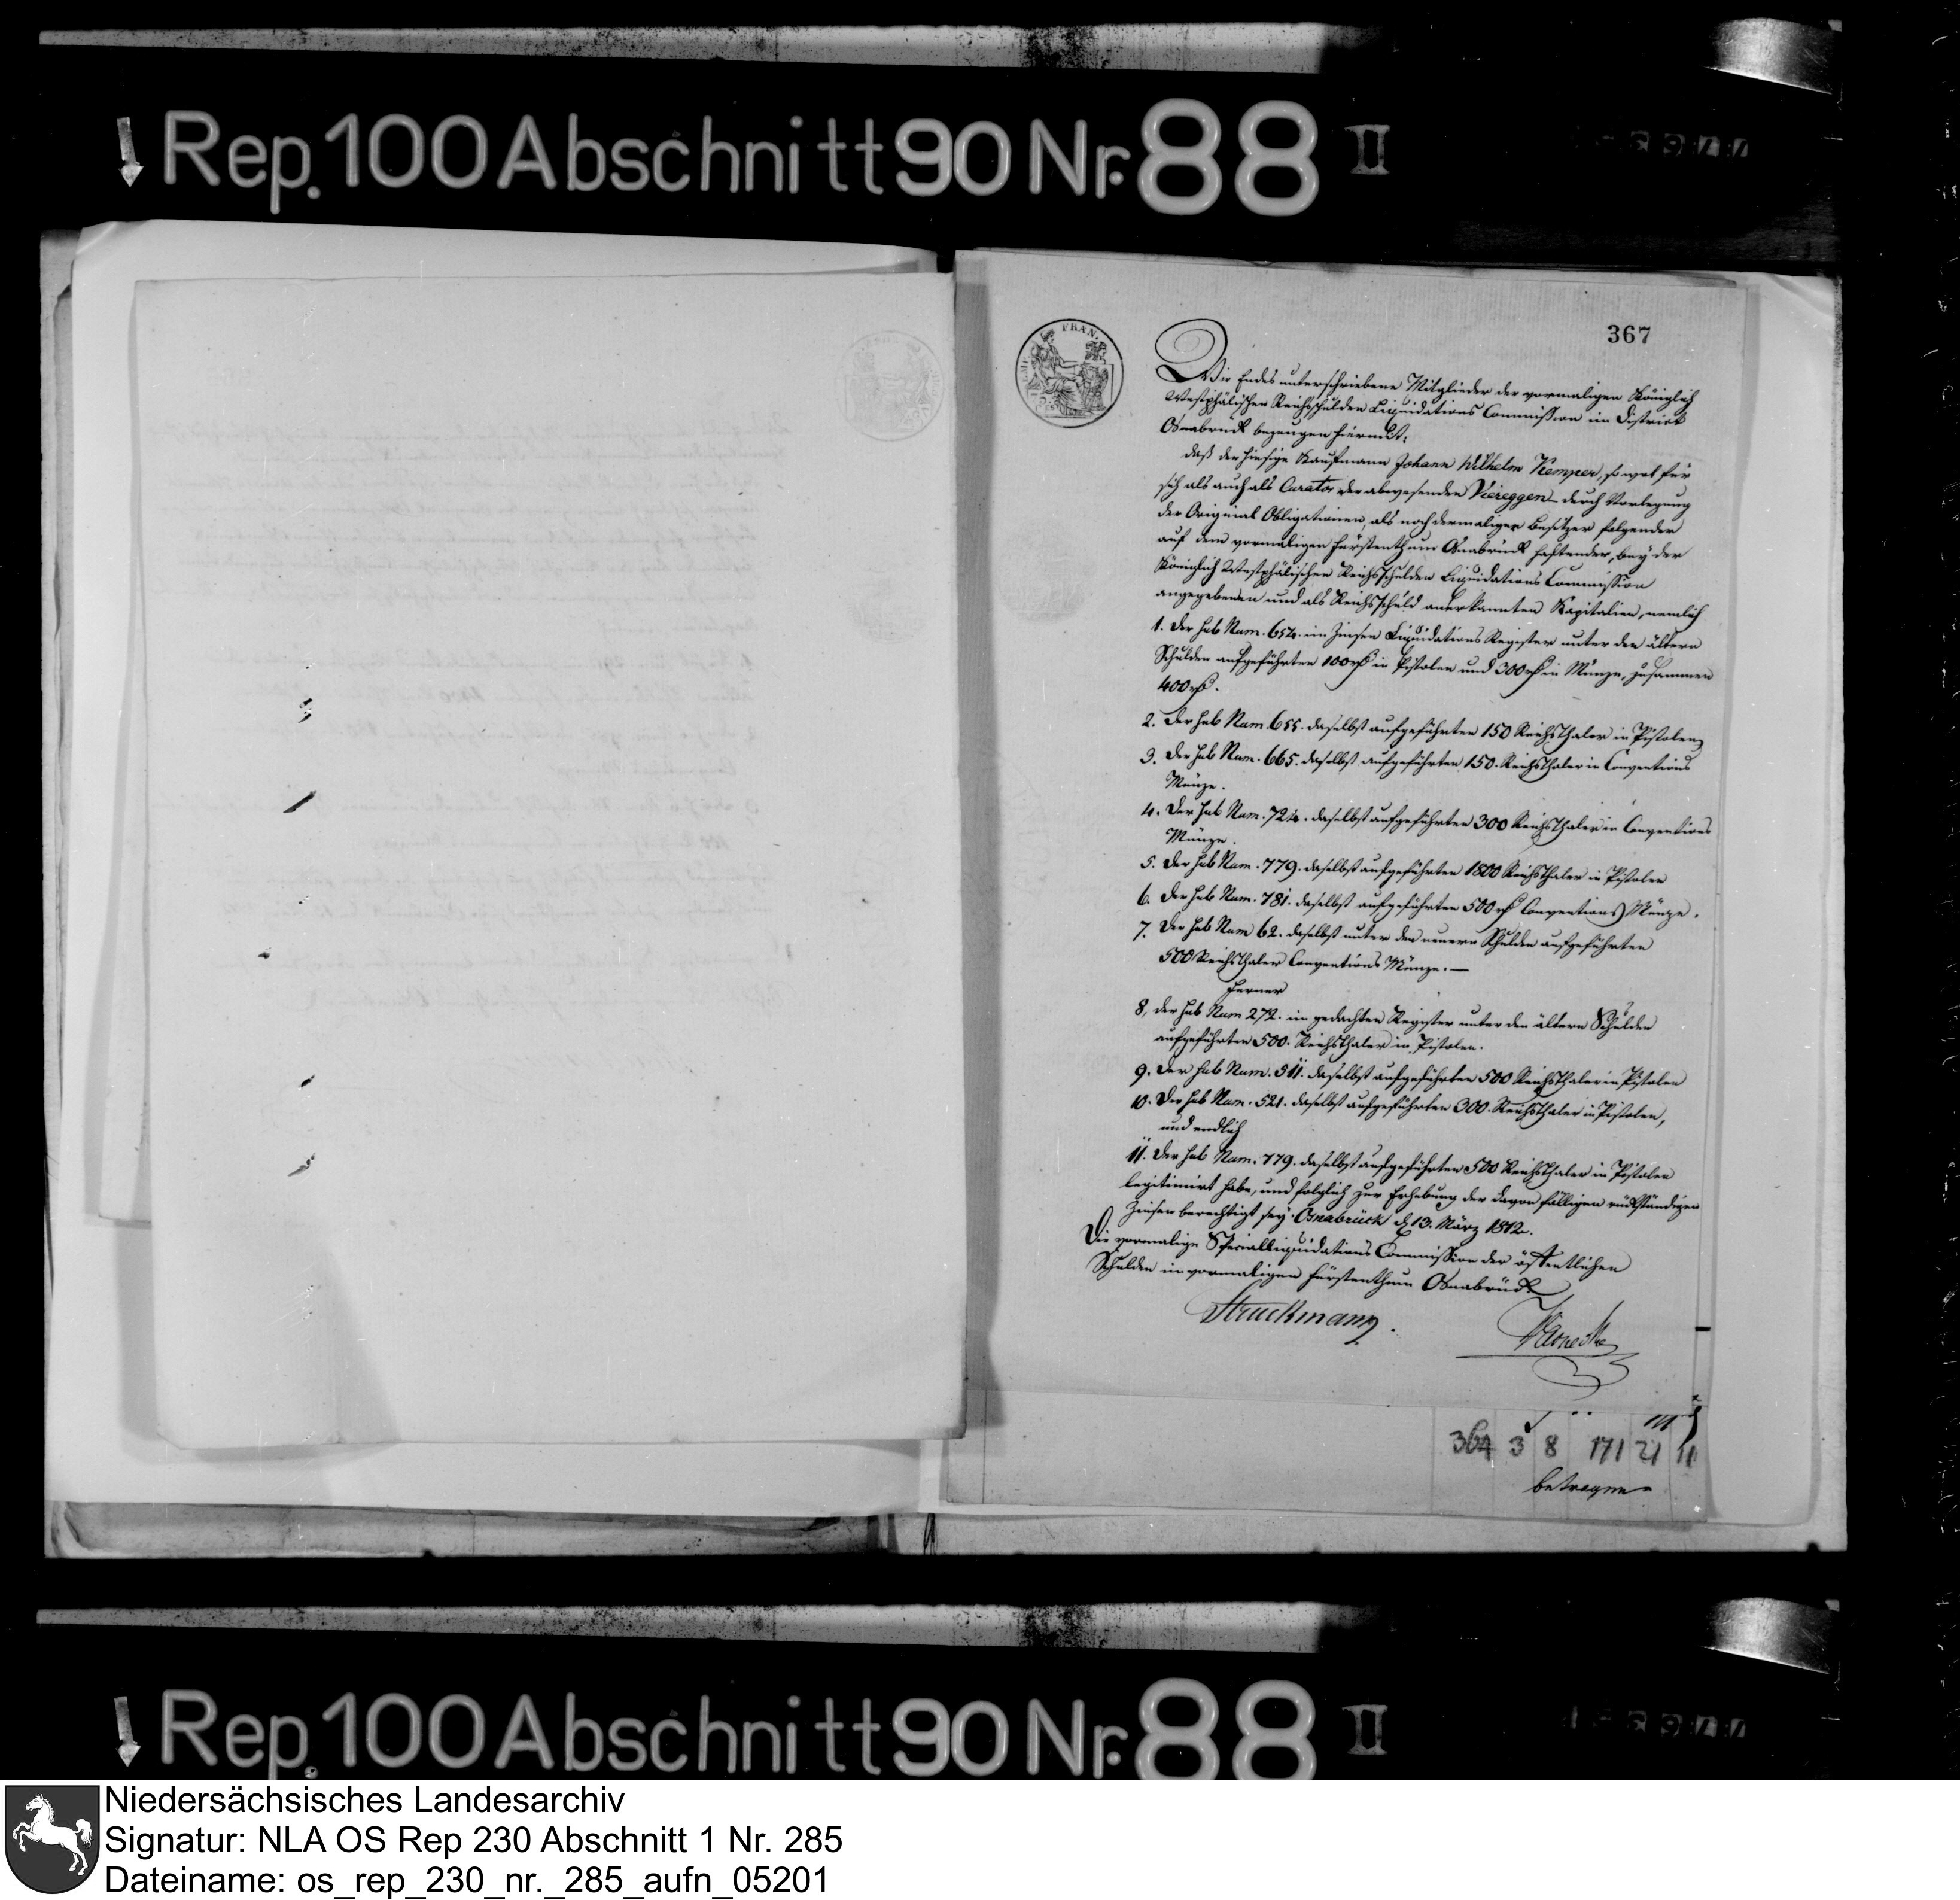 Rep. 100 Abschnitt 90 Nr. 88 II
367
FRAN.
Wir Endes unterschriebene Mitglieder der vormaligen Königlich
Westphälischen Reichsschulden Liquidations Commission im District
Osnabrück bezeugen hiermit:
daß der hiesige Kaufmann Johann Wilhelm Kemper, so wol für
sich als auch als Curator der abwesenden Viereggen durch Vorlegung
der Original Obligationen, als noch dermaliger Besitzer folgender
auf dem vormaligen Fürstenthum Osnabrück haftender, bey der
Königlich Westphälischen Reichsschulden Liquidations Commission
angegebenen und als Reichsschuld anerkannten Kapitalien, nemlich
1. der sub Num. 654. im Zinsen Liquidations Register unter den ältern
Schulden aufgeführten 100 rth in Pistolen und 300 rth in Münze, zusammen
400 rth.
2. der sub Num. 655. daselbst aufgeführten 150 Reichsthaler in Pistolen,
3. der sub Num. 665. daselbst aufgeführten 150. Reichsthaler in Conventions
Münze.
4. der sub Num. 724. daselbst aufgeführten 300 Reichsthaler in Conventions
Münze.
5. der sub Num. 779. daselbst aufgeführten 1800 Reichsthaler in Pistolen
6. der sub Num. 781. daselbst aufgeführten 500 rth Conventions Münze.
7. der sub Num 62. daselbst unter den neuern Schulden aufgeführten
500 Reichsthaler Conventions Münze. —
Ferner
8, der sub Num 272. im gedachten Register unter den ältern Schulden
aufgeführten 500. Reichsthaler in Pistolen.
9. der sub Num. 511. daselbst aufgeführten 500 Reichsthaler in Pistolen
10. der sub Num. 521. daselbst aufgeführten 300. Reichsthaler in Pistolen,
und endlich
11. der sub Num. 779. daselbst aufgeführten 500 Reichsthaler in Pistolen
legitimirt habe, und folglich zur Erhebung der davon fälligen rückständigen
Zinsen berechtigt sey. Osnabrück d 13. März 1812.
Die vormalige Specialliquidations Commission der öffentlichen
Schulden im vormaligen Fürstenthum Osnabrück
Struckmann.
364 3 8 171 21 11
betragen
Rep. 100 Abschnitt 90 Nr. 88 II
Niedersächsisches Landesarchiv
Signatur: NLA OS Rep 230 Abschnitt 1 Nr. 285
Dateiname: os_rep_230_nr._285_aufn_05201